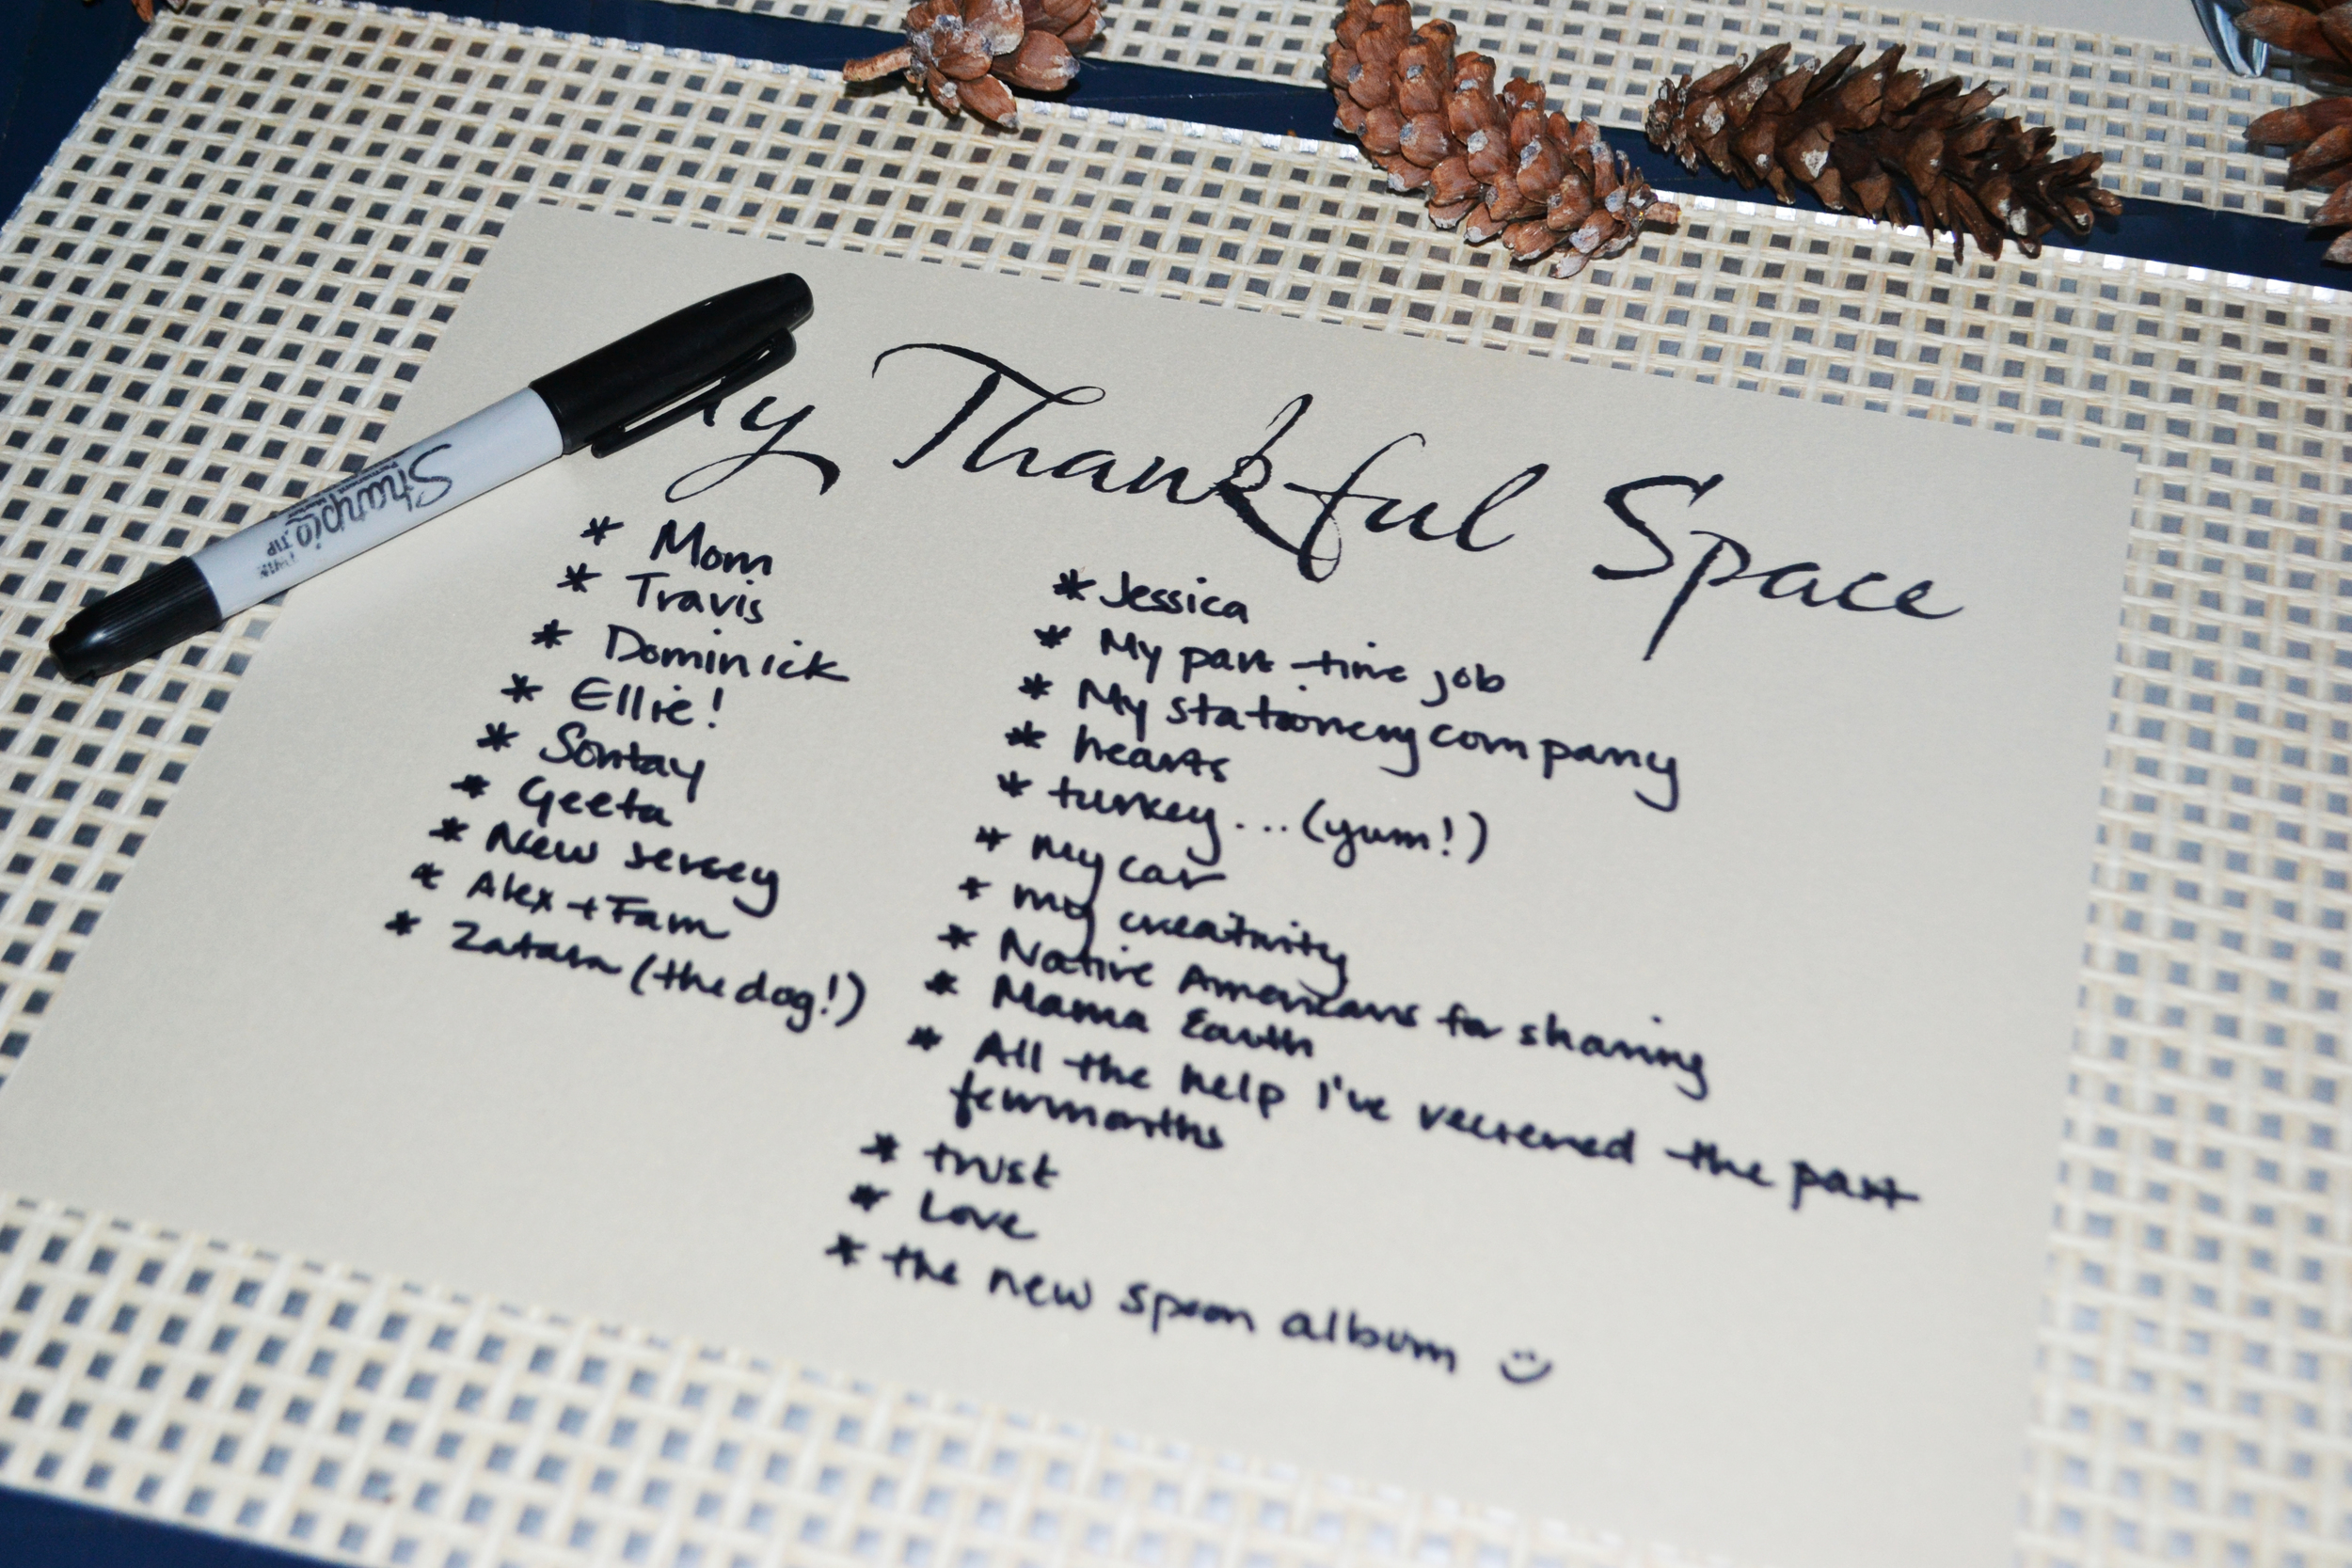 My Thankful Space
* Mom
* Travis
* Dominick
* Ellie!
* Sontay
* Geeta
* New Jersey
* Alex + Fam
* Zatara (the dog!)
* Jessica
* My part-time job
* My stationery company
* hearts
* turkey... (yum!)
* my car
* my creativity
* Native Americans for sharing
* Mama Earth
* All the help I've received the past
few months
* trust
* Love
* the new spoon album
Sharpie